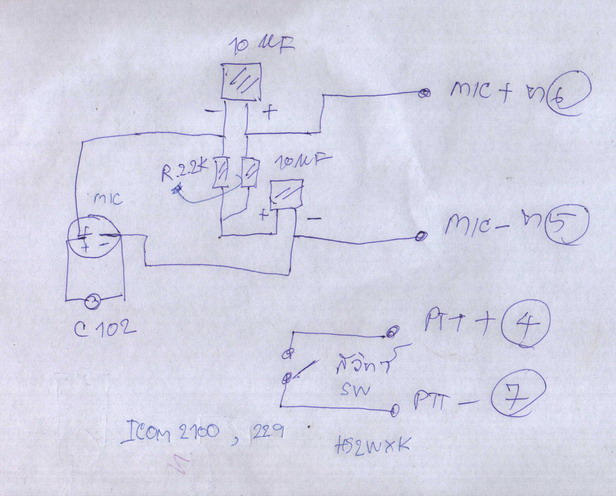 10 µF
- +
MIC + 6
R.2.2K
10 µF
+ -
MIC
+ -
MIC - 5
C 102
PTT + 4
สวิทซ์
SW
PTT - 7
ICOM 2100, 229
HS2WXK